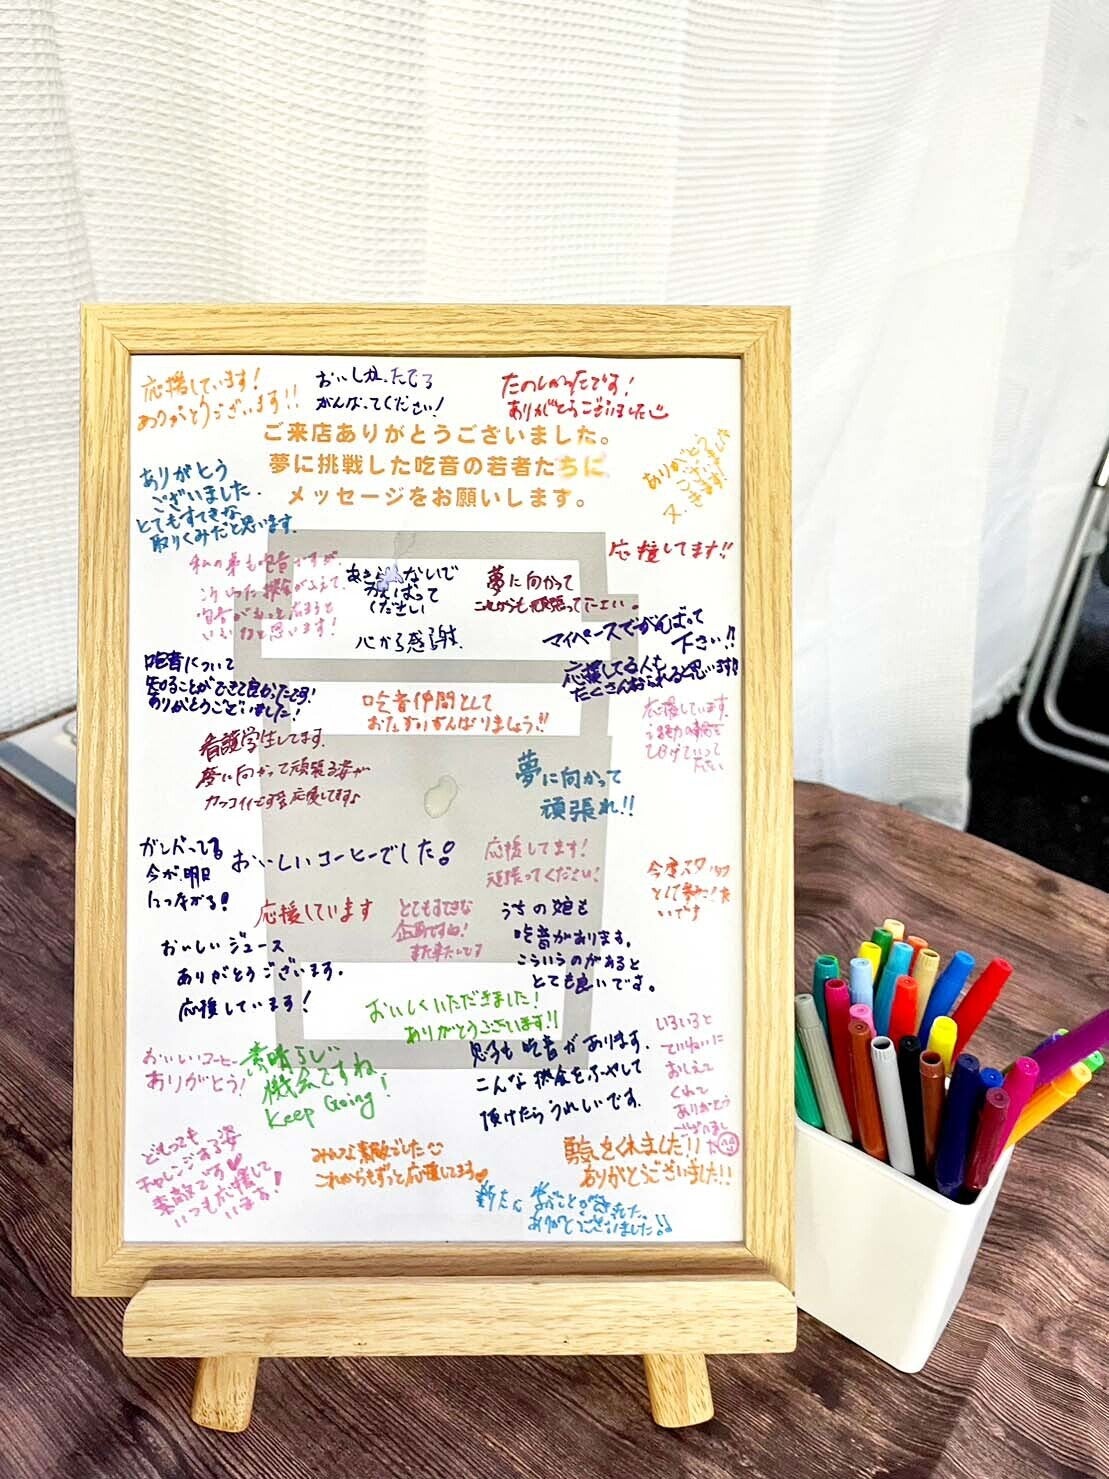 応援しています!
ありがとうございます!!
おいしかったです
がんばってください!
たのしかったです!
ありがとうございました
ご来店ありがとうございました。
夢に挑戦した吃音の若者たちに
メッセージをお願いします。
ありがとう
ございました
また
きます!
ありがとう
ございました.
とてもすてきな
取りくみだと思います.
応援してます!!
私の弟も吃音ですが、
こういった機会がふえて、
吃音がもっと広まると
いいなと思います!
あきらめないで
がんばって
ください
夢に向かって
これからも頑張って下さい。
心から感謝.
マイペースでがんばって
下さい!!
応援してる人も
たくさんおられると思います!!
吃音について
知ることができて良かったです!
ありがとうございました!
吃音仲間として
おたがいがんばりましょう!!
応援しています.
の輪を
ひろげていって
ください
看護学生してます.
夢に向かって頑張る姿が
カッコイイです 応援してます♪
夢に向かって
頑張れ!!
ガンバってる
今が、明日
につながる!
おいしいコーヒーでした!
応援してます!
頑張ってください!
今度スタッフ
として
いです
応援しています
とてもすてきな
企画ですね!
また来たいです
うちの娘も
吃音があります。
こういうのがあると
とても良いです。
おいしいジュース
ありがとうございます.
応援しています!
おいしくいただきました!
ありがとうございます!!
息子も吃音があります.
こんな機会をふやして
頂けたらうれしいです.
いろいろと
ていねいに
おしえて
くれて
ありがとう
ございまし
た
おいしいコーヒー
ありがとう!
素晴らしい
機会ですね!
Keep Going
どもっても
チャレンジする姿
素敵です♡
いつも応援して
います!
みんな素敵でした
これからもずっと応援してます♥
勇気をくれました!!
ありがとうございました!!
ことができました。
ありがとうございました!!